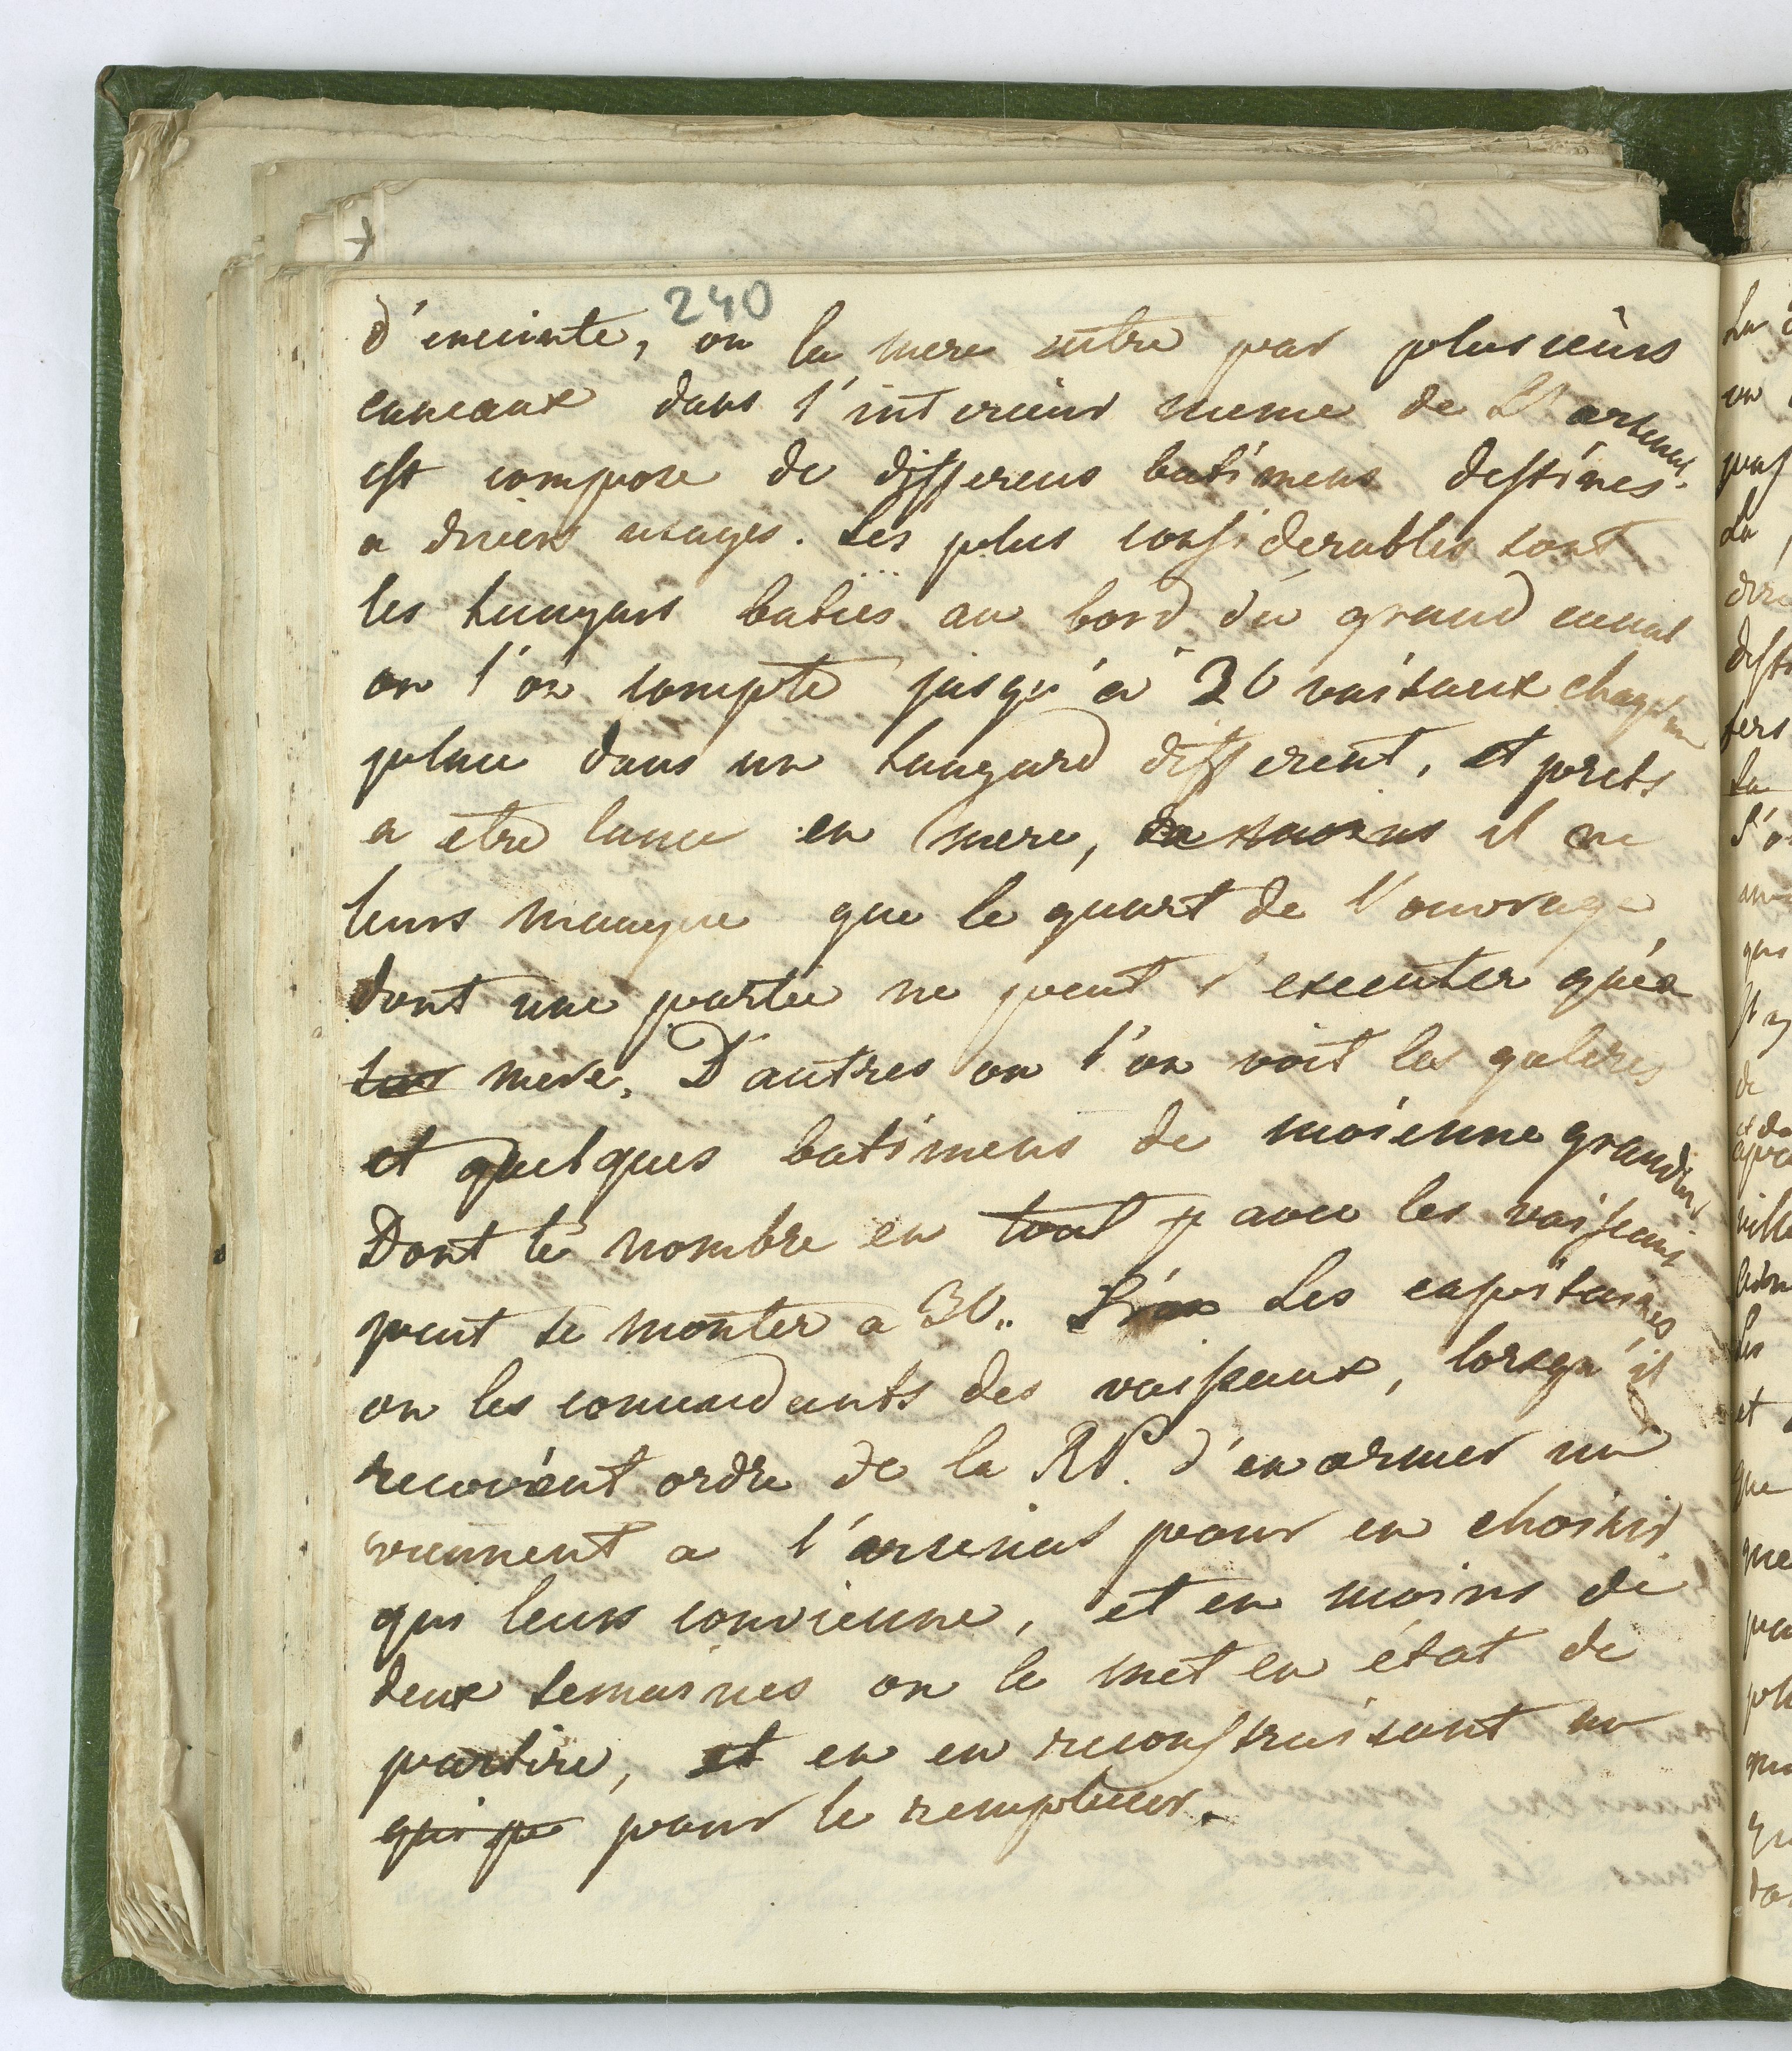 240
d'enceinte, ou la mere entre par plusieurs
caneaux dans l'interieur meme de L'arsenal
est compose de differens batimens destines
a divers usages. Les plus considerables sont
les hangars baties au bord du grand canal
ou l'on compte jusqu'a 30 vaisaux chaqu'un
place dans un hangard different, et prets
a etre lance en mere, du moins il ne
leurs manque que le quart de l'ouvrage,
dont une partie ne peut s'executer qu'en
mere. D'autres ou l'on voit les galeres
et quelques batimens de moienne grandeur
Dont le nombre en tout avec les vaisseaux
peut se monter a 50.. Les capitaines
ou les comendants des vaisseaux, lorsqu'il
recoivent ordre de la RP. d'en armer un
viennent a l'arsenal pour en choisir
qui leurs convienne, et en moins de
deux semaines on le met en état de
partire, et en en reconstruisant un
qui pe pour le remplacer.